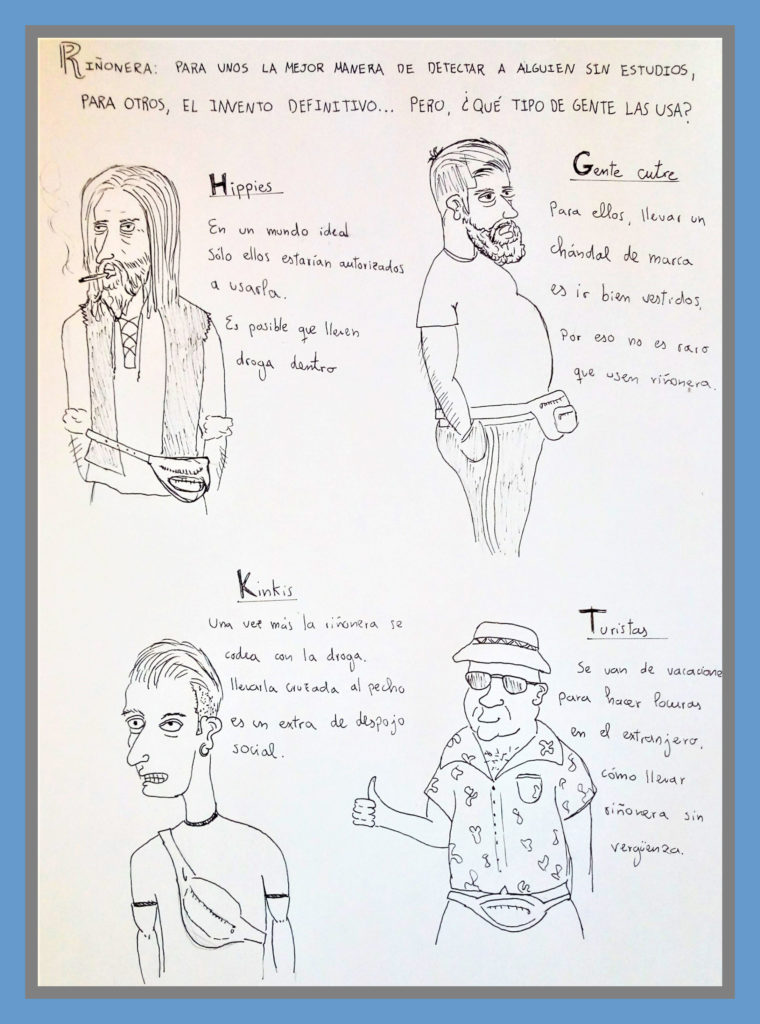 RIÑONERA: PARA UNOS LA MEJOR MANERA DE DETECTAR A ALGUIEN SIN ESTUDIOS,
PARA OTROS, EL INVENTO DEFINITIVO... PERO, ¿QUÉ TIPO DE GENTE LAS USA?
Hippies
En un mundo ideal
Sólo ellos estarían autorizados
a usarla.
Es posible que lleven
droga dentro
Gente cutre
Para ellos, llevar un
chándal de marca
es ir bien vestidos.
Por eso no es raro
que usen riñonera.
Kinkis
Una vez más la riñonera se
codea con la droga.
llevarla cruzada al pecho
es un extra de despojo
social.
Turistas
Se van de vacaciones
para hacer locuras
en el extranjero,
cómo llevar
riñonera sin
vergüenza.